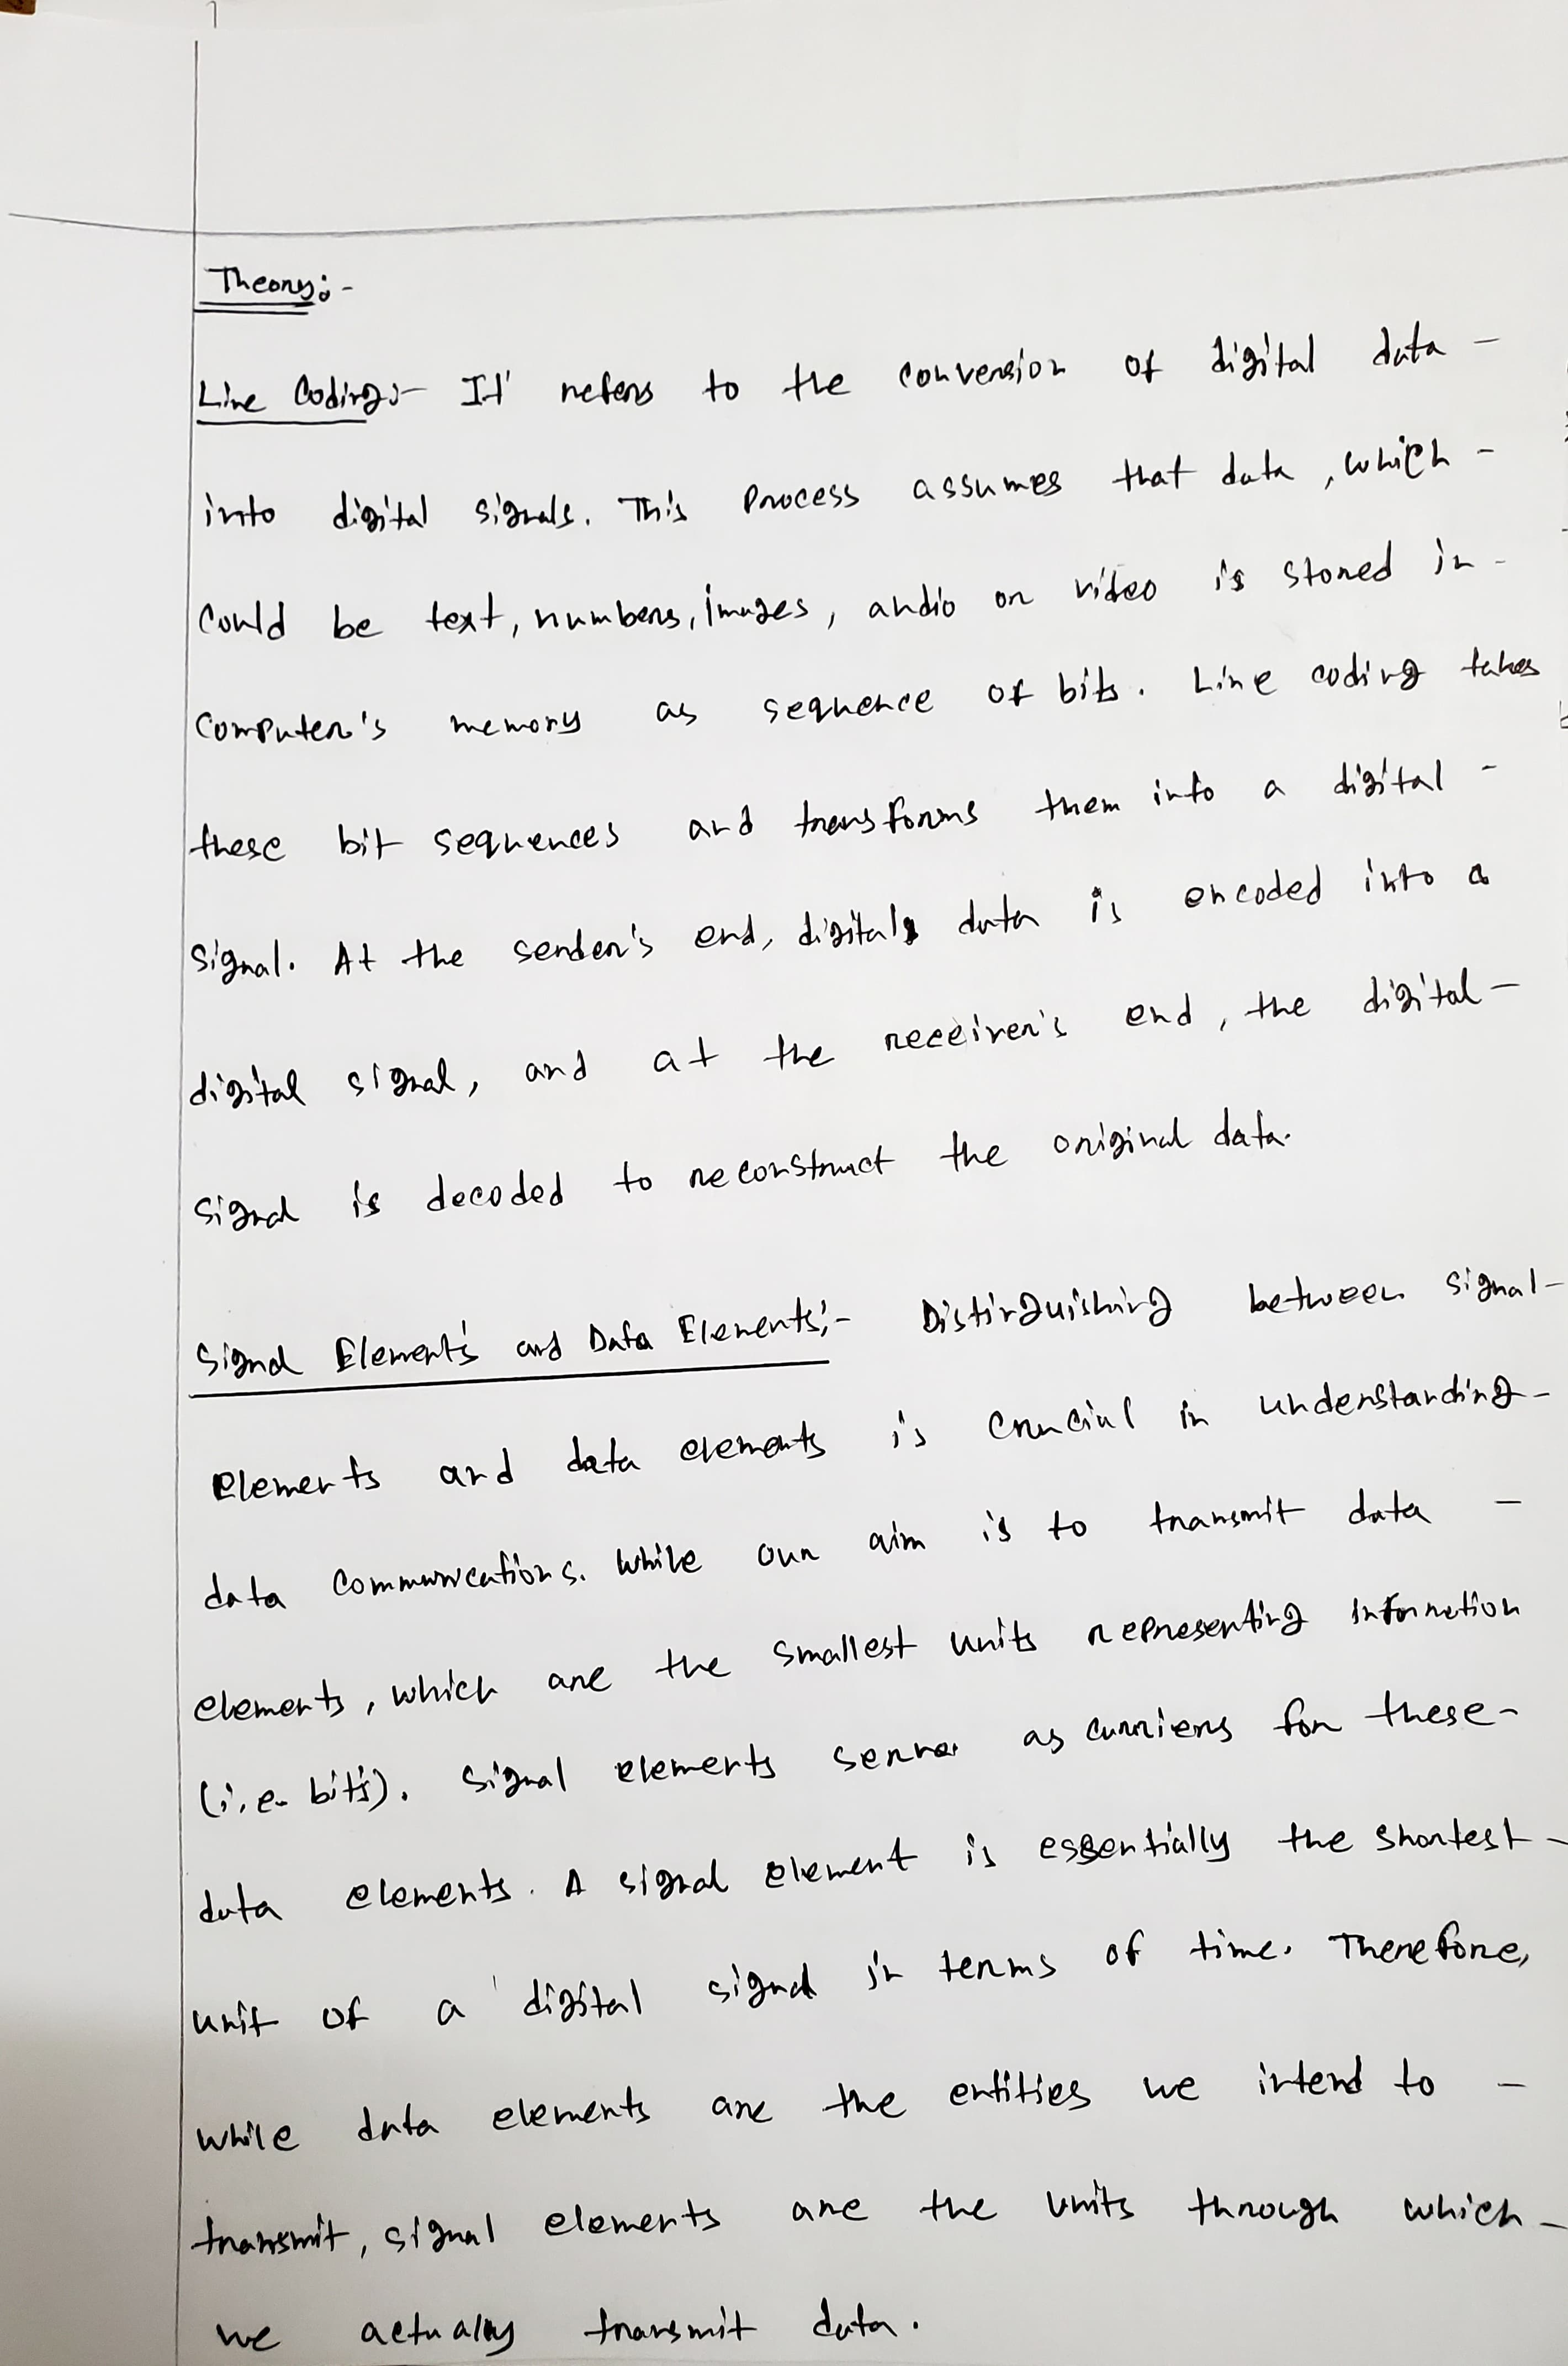 Theory:-
Line Coding:- It refers to the conversion of digital data -
into digital signals. This process assumes that data, which -
could be text, numbers, images, audio or video is stored in -
computer's memory as sequence of bits. Line coding takes
these bit sequences and transforms them into a digital -
signal. At the sender's end, digital data is encoded into a
digital signal, and at the receiver's end, the digital -
signal is decoded to reconstruct the original data.
Signal Elements and Data Elements:- Distinguishing between signal -
elements and data elements is crucial in understanding -
data communications. While our aim is to transmit data -
elements, which are the smallest units representing information
(i.e. bits). Signal elements serve as carriers for these -
data elements. A signal element is essentially the shortest -
unit of a digital signal in terms of time. Therefore,
while data elements are the entities we intend to -
transmit, signal elements are the units through which -
we actually transmit data.